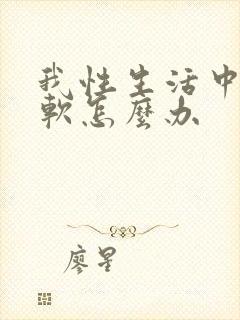 我性生活中
軟怎麼办
廖星